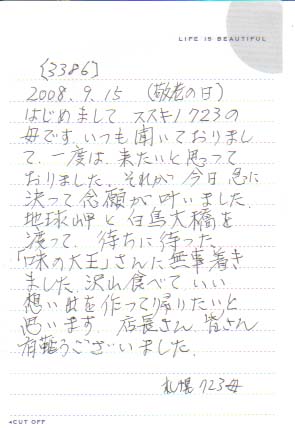 LIFE IS BEAUTIFUL
[3386]
2008.9.15 (敬老の日)
はじめまして ススキノ723の
母です。いつも聞いておりまし
て、一度は、来たいと思って
おりました。それが、今日 急に
決って念願が叶いました。
地球岬と白鳥大橋を
渡って、待ちに待った、
「味の大王」さんに無事着き
ました。沢山食べて、いい
想い出を作って帰りたいと
思います。店長さん 皆さん
有難うございました。
札幌 723母
◂CUT OFF